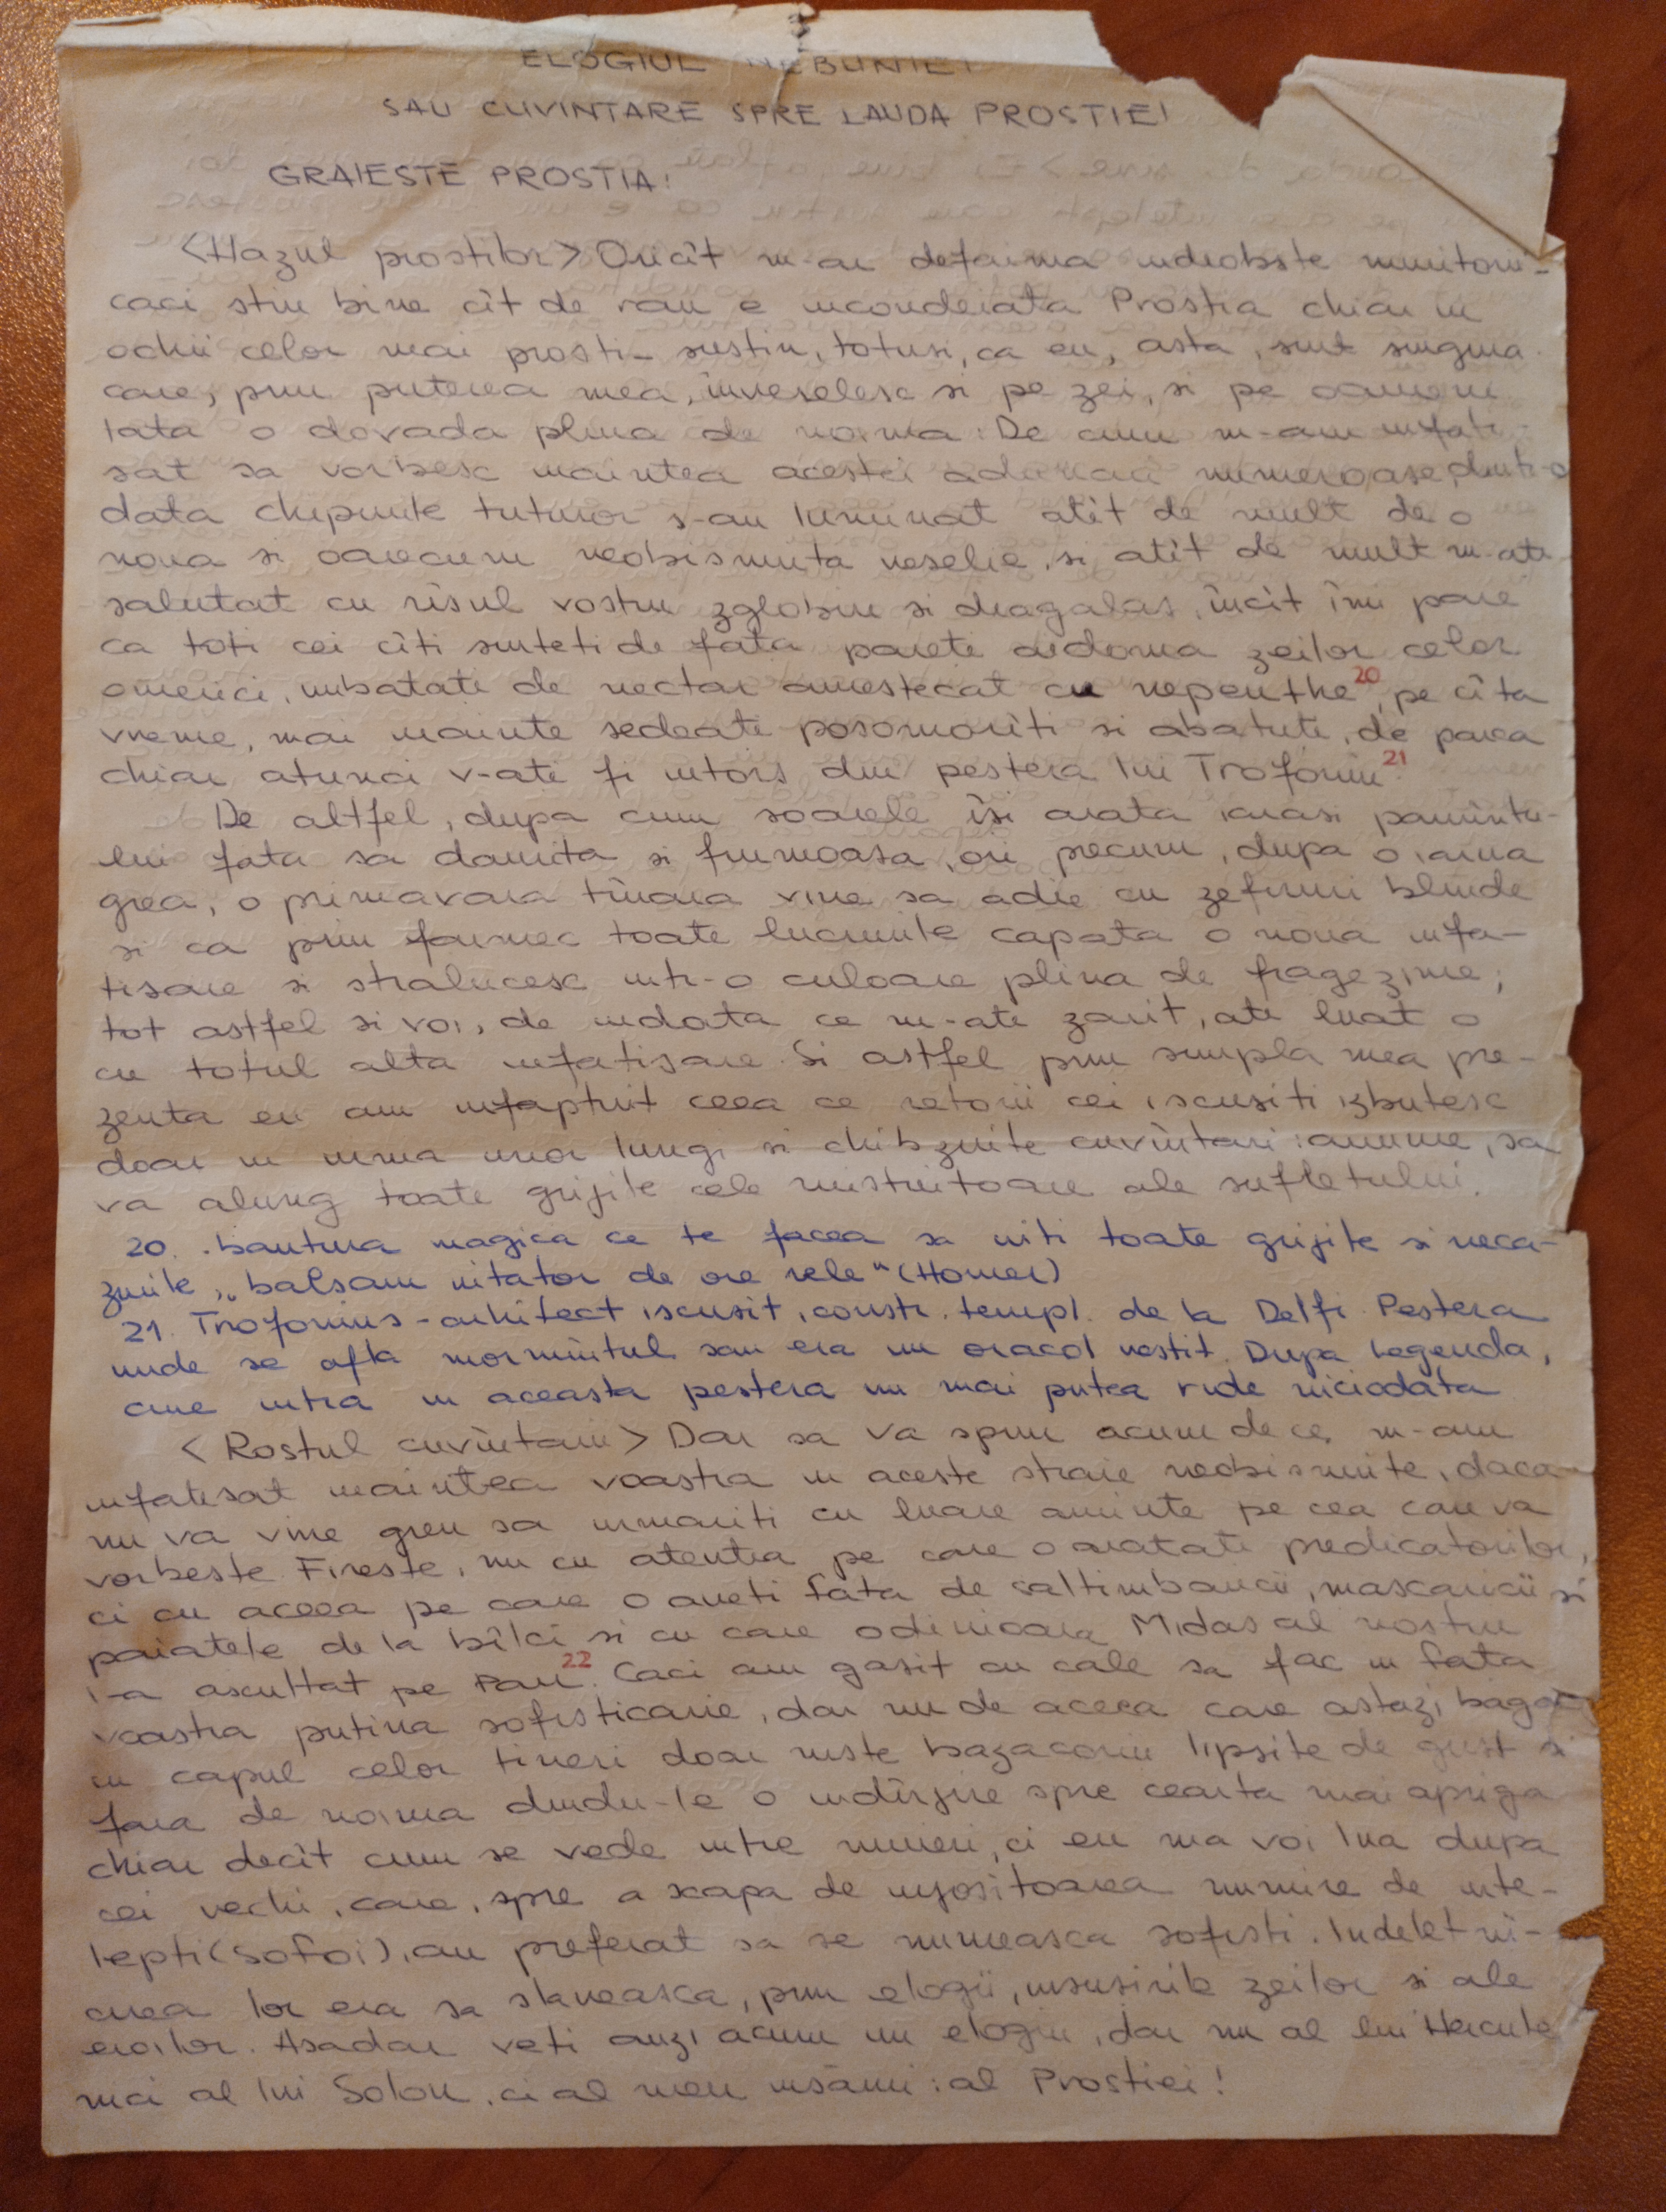 ELOGIUL NEBUNIEI
SAU CUVINTARE SPRE LAUDA PROSTIEI
GRAIESTE PROSTIA:
<Hazul prostilor> Oricît m-ar defaima indeobste muritorii-
caci stiu bine cît de rau e incondeiata Prostia chiar in
ochii celor mai prosti- sustin, totusi, ca eu, asta, sint singura
care, prin puterea mea, înveselesc si pe zei, si pe oameni
Iata o dovada plina de noima: De cum m-am infati-
sat sa vorbesc inaintea acestei adunari numeroase, dintr-o
data chipurile tuturor s-au luminat atît de mult de o
noua si oarecum neobisnuita veselie, si atît de mult m-ati
salutat cu rîsul vostru zglobiu si dragalas, încît îmi pare
ca toti cei cîti sinteti de fata pareti aidoma zeilor celor
omerici, imbatati de nectar amestecat cu nepenthe 20, pe cîta
vreme, mai inainte sedeati posomorîti si abatuti, de parca
chiar atunci v-ati fi intors din pestera lui Trofoniu 21.
De altfel, dupa cum soarele îsi arata iarasi pamîntu-
lui fata sa daurita si frumoasa, ori precum, dupa o iarna
grea, o primavara tînara vine sa adie cu zefiruri blinde
si ca prin farmec toate lucrurile capata o noua infa-
tisare si stralucesc intr-o culoare plina de fragezime;
tot astfel si voi, de indata ce m-ati zarit, ati luat o
cu totul alta infatisare. Si astfel prin simpla mea pre-
zenta eu am infaptuit ceea ce retorii cei iscusiti izbutesc
doar in urma unor lungi si chibzuite cuvîntari: anume, sa
va alung toate grijile cele mistuitoare ale sufletului.
20. bautura magica ce te facea sa uiti toate grijile si neca-
zurile, "balsam uitator de ore rele" (Homer)
21. Trofonius - arhitect iscusit, constr. templ. de la Delfi. Pestera
unde se afla mormîntul sau era un oracol vestit. Dupa legenda,
cine intra in aceasta pestera nu mai putea ride niciodata
<Rostul cuvîntarii> Dar sa va spun acum de ce m-am
infatisat inaintea voastra in aceste straie neobisnuite, daca
nu va vine greu sa urmariti cu luare aminte pe cea care va
vorbeste. Fireste, nu cu atentia pe care o aratati predicatorilor,
ci cu aceea pe care o aveti fata de saltimbancii, mascaricii si
paiatele de la bîlci si cu care odinioara Midas al nostru
l-a ascultat pe Pan 22. Caci am gasit cu cale sa fac in fata
voastra putina sofisticarie, dar nu de aceea care astazi baga
in capul celor tineri doar niste bazaconii lipsite de gust si
fara de noima dindu-le o indîrjire spre cearta mai apriga
chiar decît cum se vede intre muieri, ci eu ma voi lua dupa
cei vechi, care, spre a scapa de injositoarea numire de inte-
lepti (sofoi), au preferat sa se numeasca sofisti. Indeletni-
cirea lor era sa slaveasca, prin elogii, insusirile zeilor si ale
eroilor. Asadar veti auzi acum un elogiu, dar nu al lui Hercule
nici al lui Solon, ci al meu însami: al Prostiei!